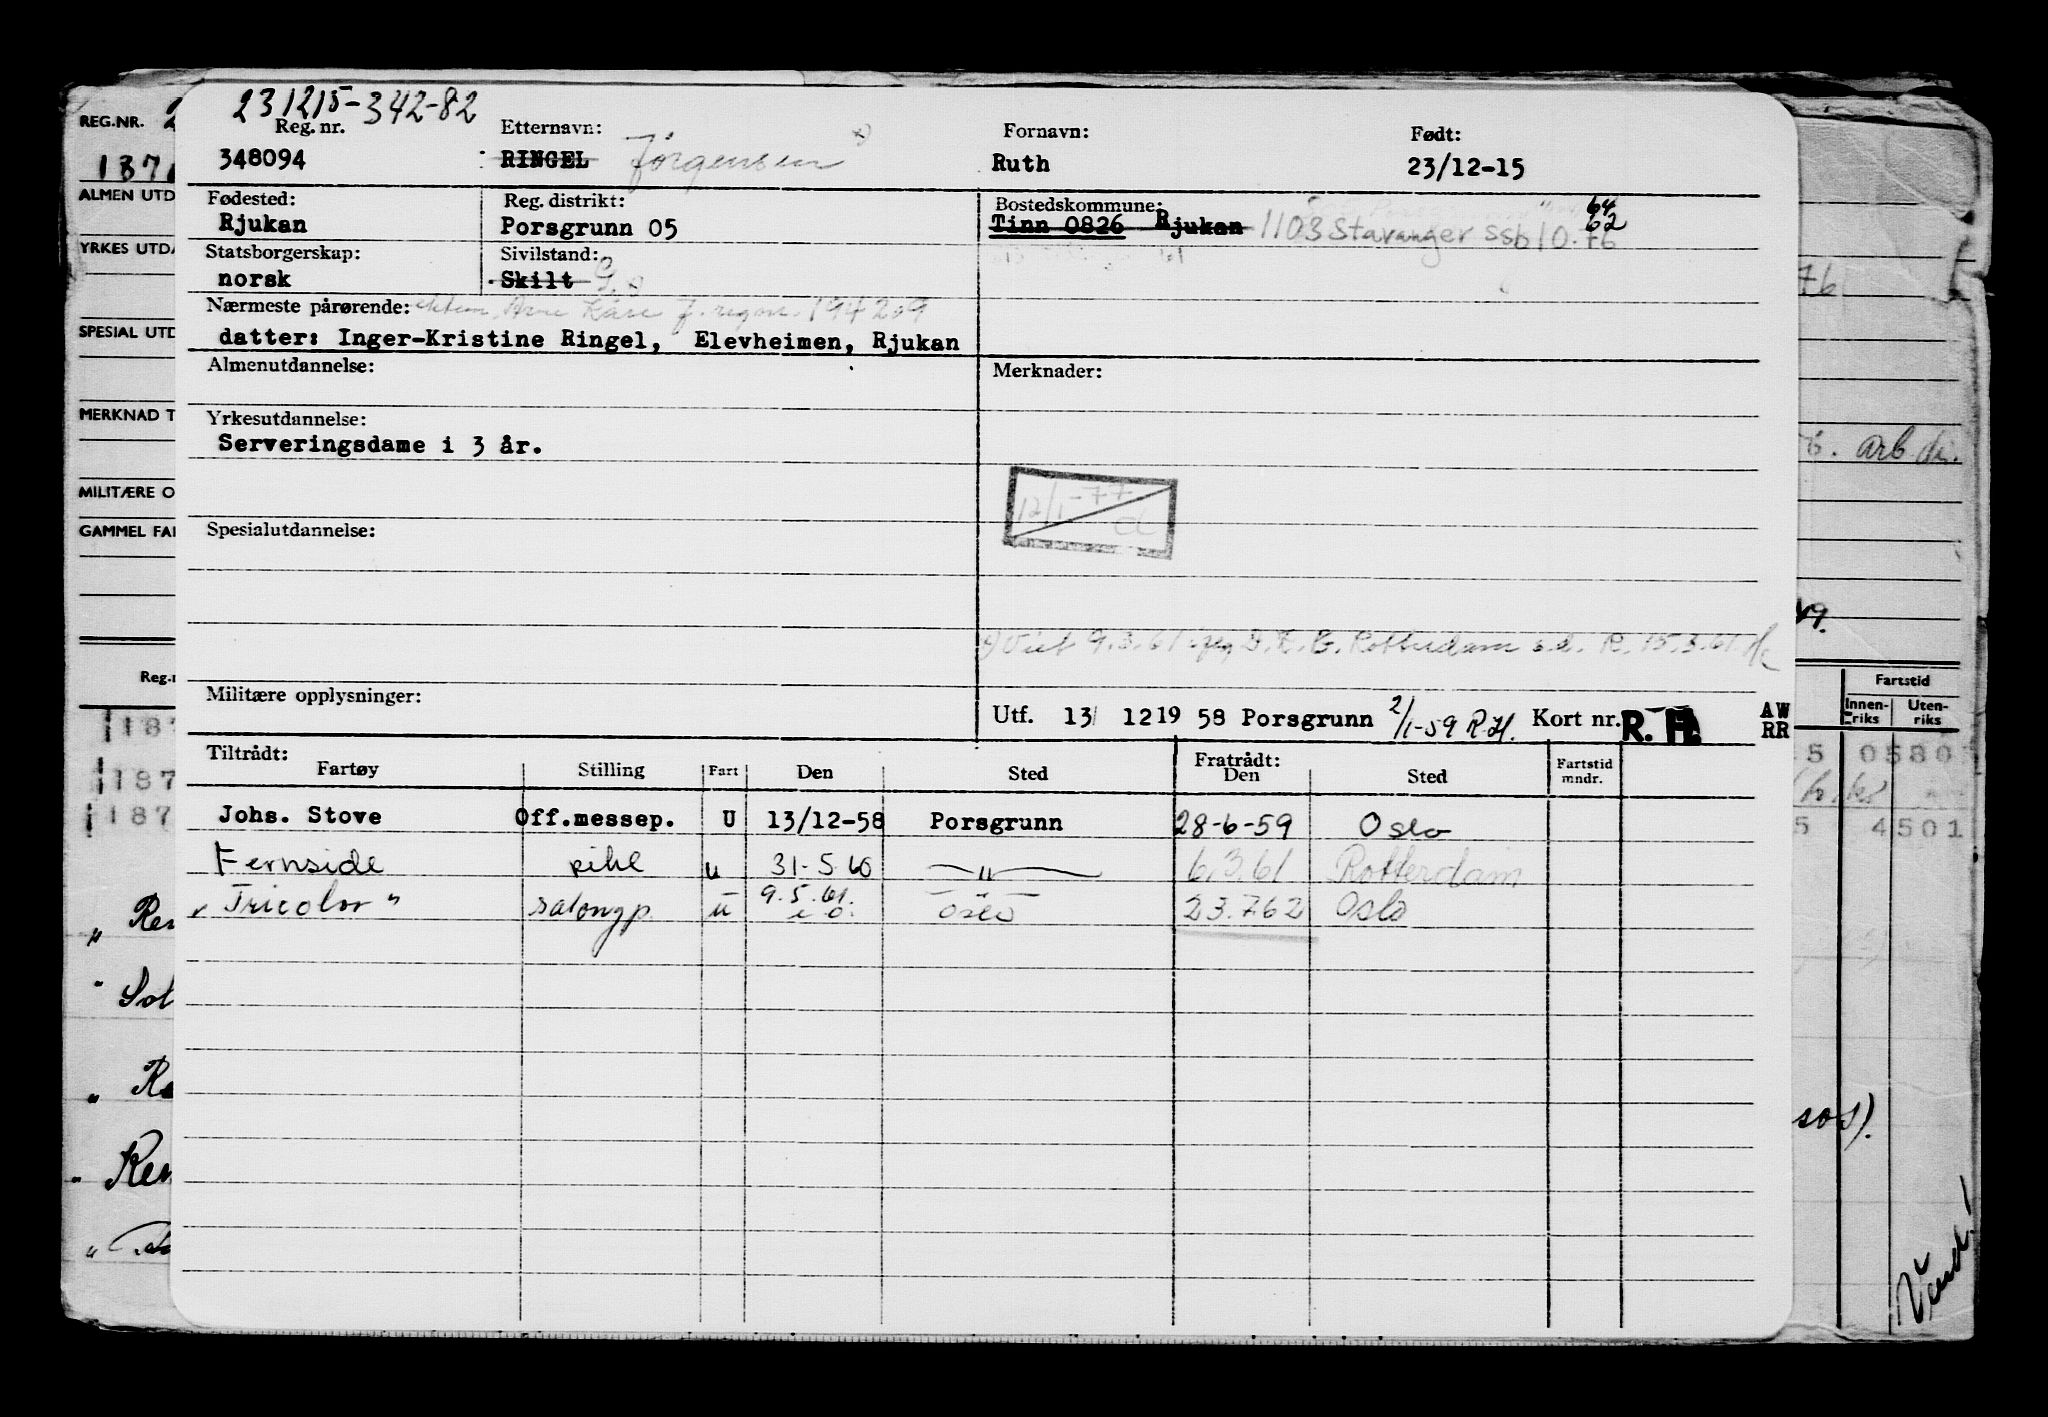 REG.NR.
231215-342-82
Reg. nr. Etternavn: Fornavn: Født:
348094 RINGEL Jørgensen x) Ruth 23/12-15
ALMEN UTD
Fødested: Reg. distrikt: Bostedskommune: 64
Rjukan Porsgrunn 05 Tinn 0826 Rjukan 1103 Stavanger ssb 10.76 62
YRKES UTDA
Statsborgerskap: Sivilstand:
norsk Skilt G. x)
76
Nærmeste pårørende: Arne Kåre 194209
SPESIAL UTD
datter: Inger-Kristine Ringel, Elevheimen, Rjukan
Almenutdannelse: Merknader:
MERKNAD T
Yrkesutdannelse:
Serveringsdame i 3 år.
arb dir.
MILITÆRE O
12/1-77
GAMMEL FA
Spesialutdannelse:
x) Viet 9.3.61 Rotterdam R. 15.3.61
Reg.
Militære opplysninger:
Fartstid
Utf. 13/ 1219 58 Porsgrunn 2/1-59 R.H. Kort nr. R. H. AW
RR
Innen-riks Uten-riks
187
Tiltrådt: Fratrådt:
Fartøy Stilling Fart Den Sted Den Sted Fartstid mndr.
5 0580
187
Johs. Stove Off.messep. U 13/12-58 Porsgrunn 28-6-59 Oslo
187
5 4501
Fernside pike u 31-5 60 —"— 6.3.61 Rotterdam
Tricolor " salongp. u 9.5.61. Oslo 23.7.62 Oslo
Vend!